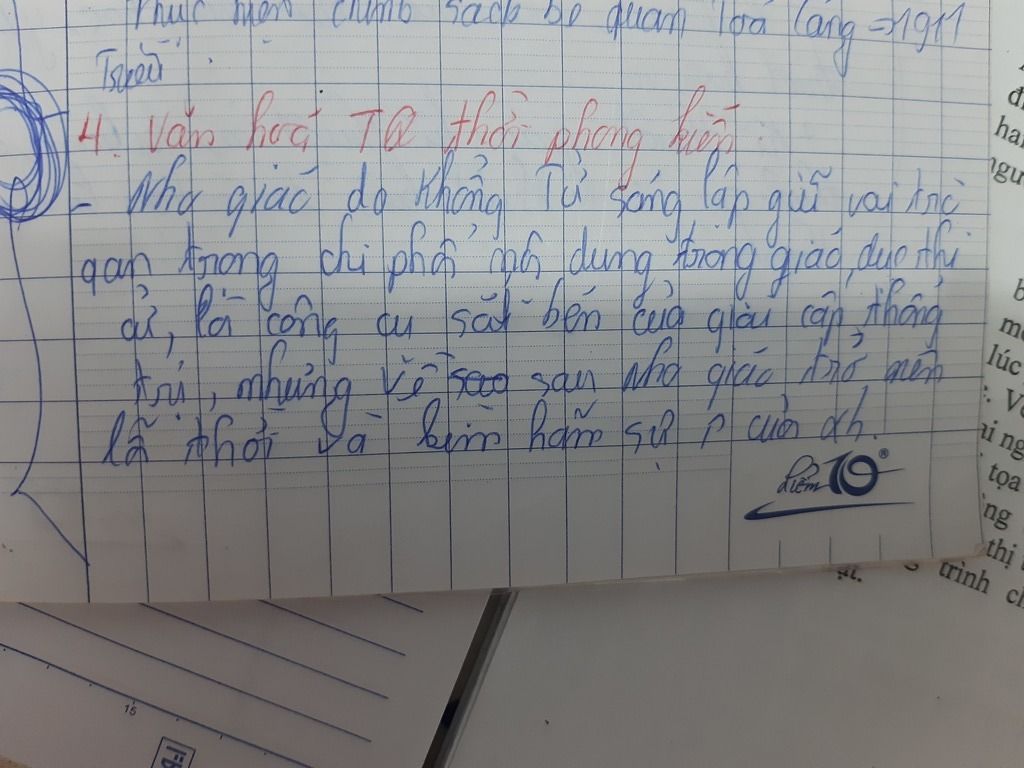 Thực hiện chính sách bế quan toả cảng =>1911
4. Văn hoá TQ thời phong kiến.
- Nho giáo do Khổng Tử sáng lập giữ vai trò
quan trọng chi phối nội dung trong giáo dục thi
cử, là công cụ sắc bén của giai cấp thống
trị, nhưng về sao sau Nho giáo trở nên
lỗi thời và kìm hãm sự p của xh.
điểm 10
15
lúc
tọa
thị
trình